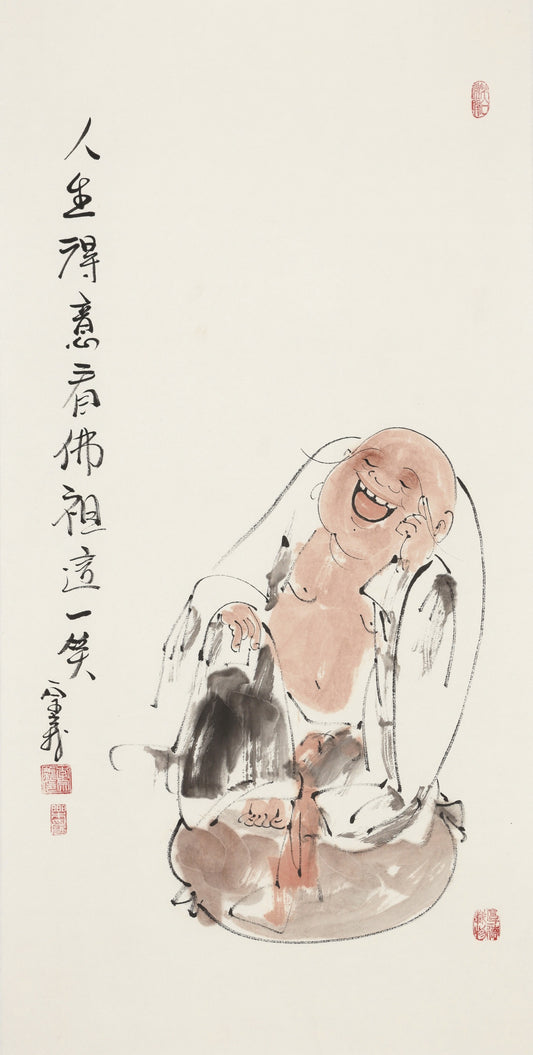 人生得意看佛祖這一笑